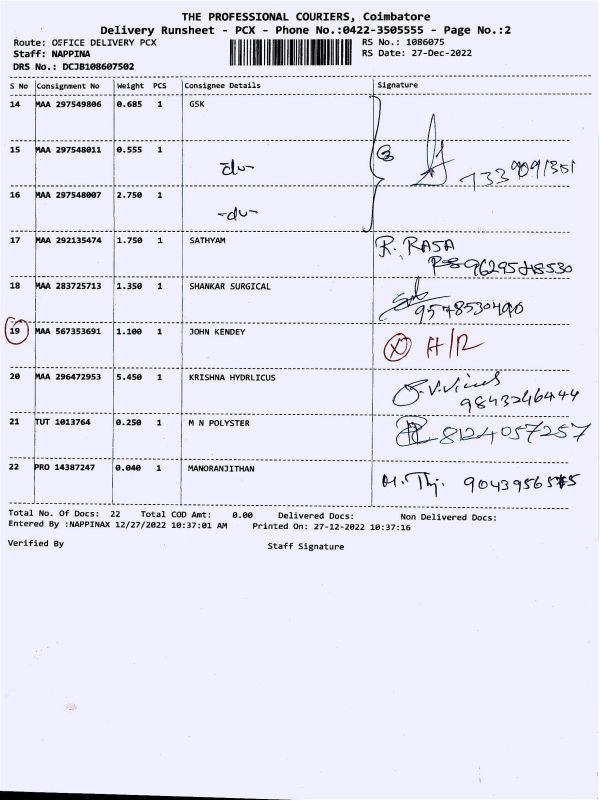 THE PROFESSIONAL COURIERS, Coimbatore
Delivery Runsheet - PCX - Phone No.:0422-3505555 - Page No.:2
Route: OFFICE DELIVERY PCX
RS No.: 1086075
Staff: NAPPINA
RS Date: 27-Dec-2022
DRS No.: DCJB108607502
S No Consignment No Weight PCS Consignee Details Signature
14 MAA 297549806 0.685 1 GSK
15 MAA 297548011 0.555 1 -du- 3 7339091351
16 MAA 297548007 2.750 1 -du-
17 MAA 292135474 1.750 1 SATHYAM R. RASA
18 MAA 283725713 1.350 1 SHANKAR SURGICAL
9578530490
19 MAA 567353691 1.100 1 JOHN KENDEY X H/R
20 MAA 296472953 5.450 1 KRISHNA HYDRLICUS
9843246444
21 TUT 1013764 0.250 1 M N POLYSTER 8124057257
22 PRO 14387247 0.040 1 MANORANJITHAN
Total No. Of Docs: 22 Total COD Amt: 0.00 Delivered Docs: Non Delivered Docs:
Entered By :NAPPINAX 12/27/2022 10:37:01 AM Printed On: 27-12-2022 10:37:16
Verified By Staff Signature